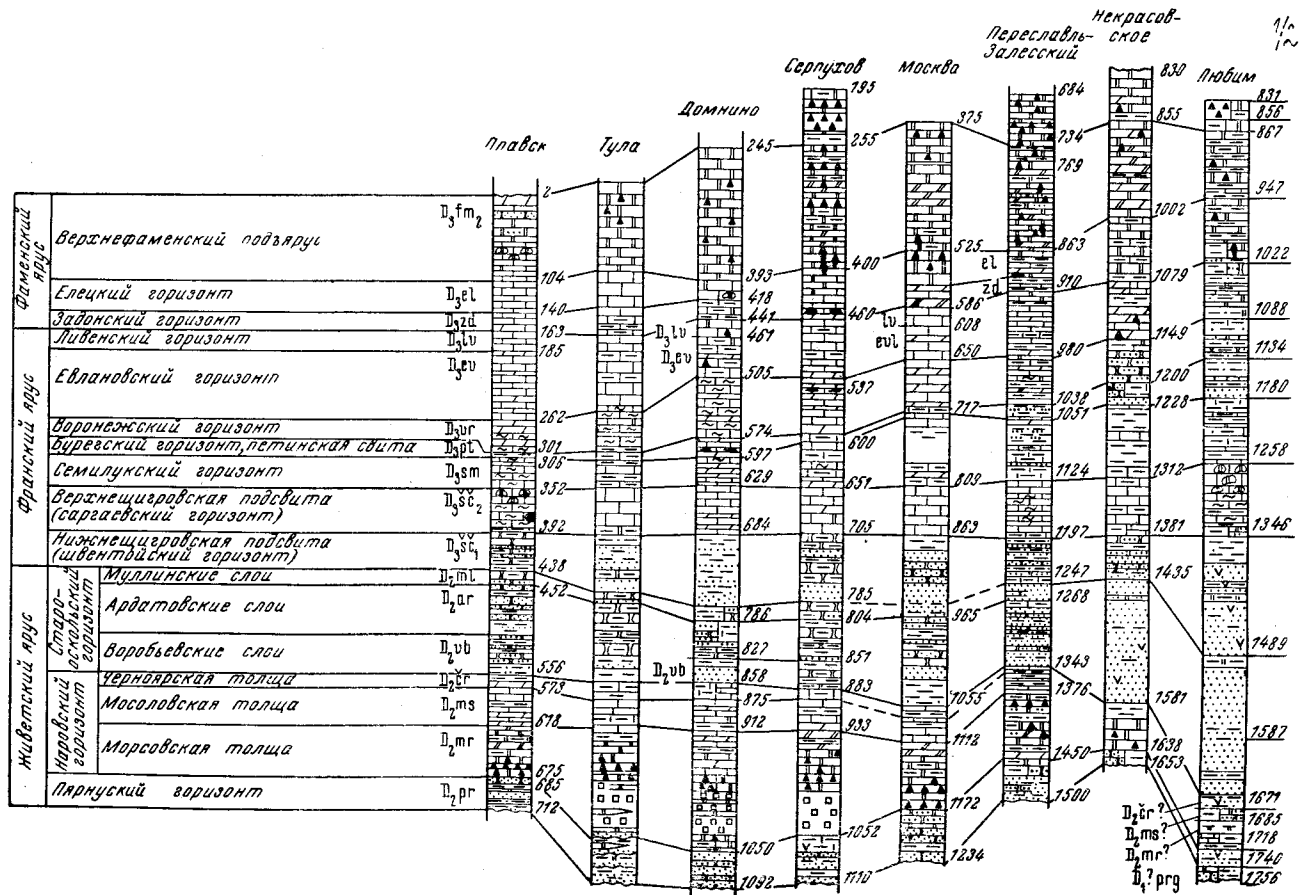 Плавск
Тула
Домнино
Серпухов
Москва
Переславль-
Залесский
Некрасов-
ское
Любим
Фаменский ярус
Верхнефаменский подъярус D₃fm₂
Елецкий горизонт D₃el
Задонский горизонт D₃zd
Франский ярус
Ливенский горизонт D₃lv
Евлановский горизонт D₃ev
Воронежский горизонт D₃vr
Бурегский горизонт, петинская свита D₃pt
Семилукский горизонт D₃sm
Верхнещигровская подсвита D₃šč₂
(саргаевский горизонт)
Нижнещигровская подсвита D₃šč₁
(швентойский горизонт)
Живетский ярус
Старо-
оскольский
горизонт
Муллинские слои D₂ml
Ардатовские слои D₂ar
Воробьевские слои D₂vb
Наровский
горизонт
Черноярская толща D₂čr
Мосоловская толща D₂ms
Морсовская толща D₂mr
Пярнуский горизонт D₂pr
2
104
140
163
185
262
301
306
352
392
438
452
556
573
618
675
685
712
245
393
418
441
461
505
574
597
629
684
786
827
858
875
912
1050
1092
D₃lv
D₃ev
D₂vb
195
255
400
460
537
600
651
705
785
804
851
883
933
1052
1110
375
525
586
608
650
717
809
863
965
1055
1112
1172
1234
el
zd
lv
evl
684
734
769
863
910
980
1038
1051
1124
1197
1247
1268
1343
1376
1450
1500
830
855
1002
1079
1149
1200
1228
1312
1381
1435
1581
1638
1653
831
856
867
947
1022
1088
1134
1180
1258
1346
1489
1587
1671
1685
1718
1740
1756
D₂čr?
D₂ms?
D₂mr?
D₁?prg